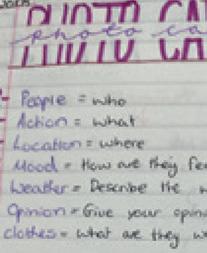 PHOTO CA
photo ca
- People = who
- Action = what
- Location = where
Mood = How are they fee
Weather = Describe the w
Opinion = Give your opini
clothes = what are they we